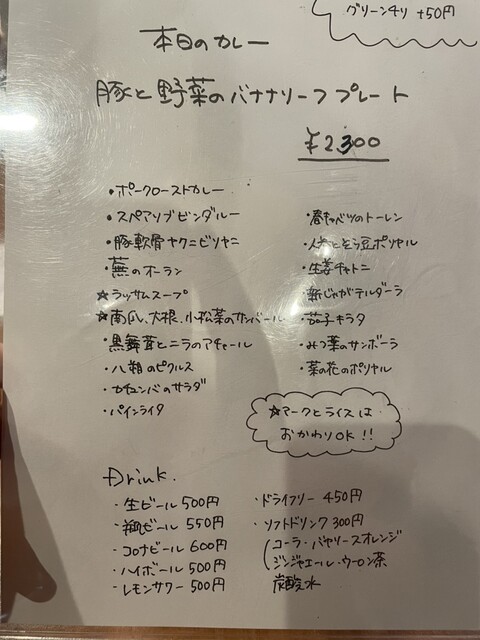 グリーン4リ +50円
本日のカレー
豚と野菜のバナナリーフプレート
¥2,300
・ポークローストカレー
・スペアリブビンダルー
・豚軟骨ヤクニビリヤニ
・蕪のオーラン
☆ラッサムスープ
☆南瓜、大根、小松菜のサンバール
・黒舞茸とニラのアチャール
・八朔のピクルス
・カチュンバのサラダ
・パインライタ
・春キャベツのトーレン
・人参とそら豆ポリヤル
・生姜チャトニ
・新じゃがテルダーラ
・茄子キラタ
・みつ葉のサンボーラ
・菜の花のポリヤル
☆マークとライスは
おかわりOK!!
Drink.
・生ビール 500円
・瓶ビール 550円
・コロナビール 600円
・ハイボール 500円
・レモンサワー 500円
・ドライフリー 450円
・ソフトドリンク 300円
(コーラ・バヤリースオレンジ
ジンジャエール・ウーロン茶
炭酸水